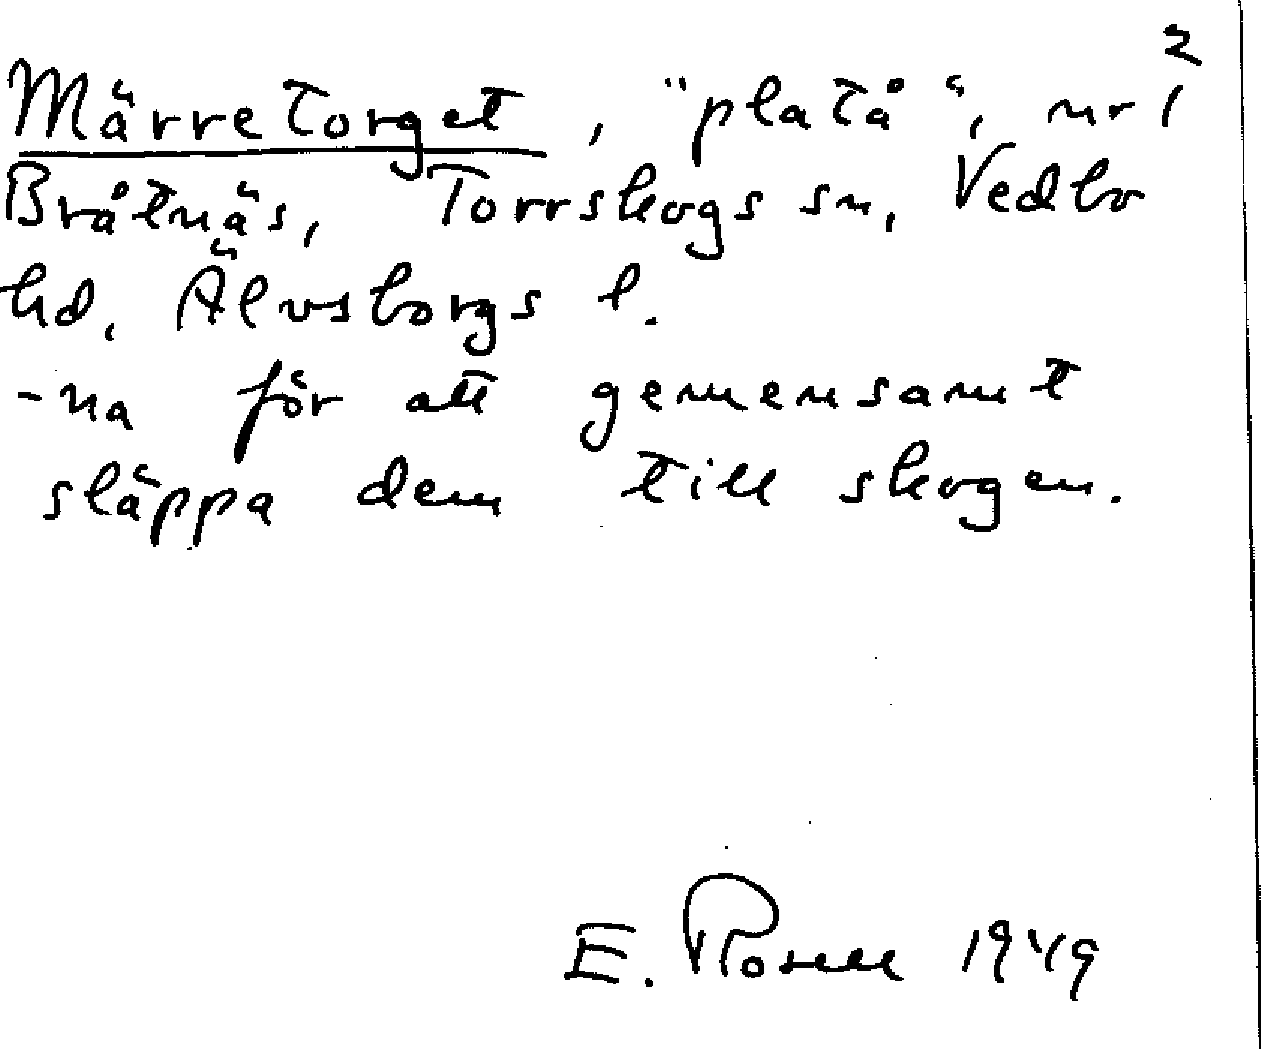 2
Märretorget, "platå", nr 1
Bråtnäs, Torrskogs sn, Vedbo
hd, Älvsborgs l.
-na för att gemensamt
släppa dem till skogen.
E. Rosell 1949